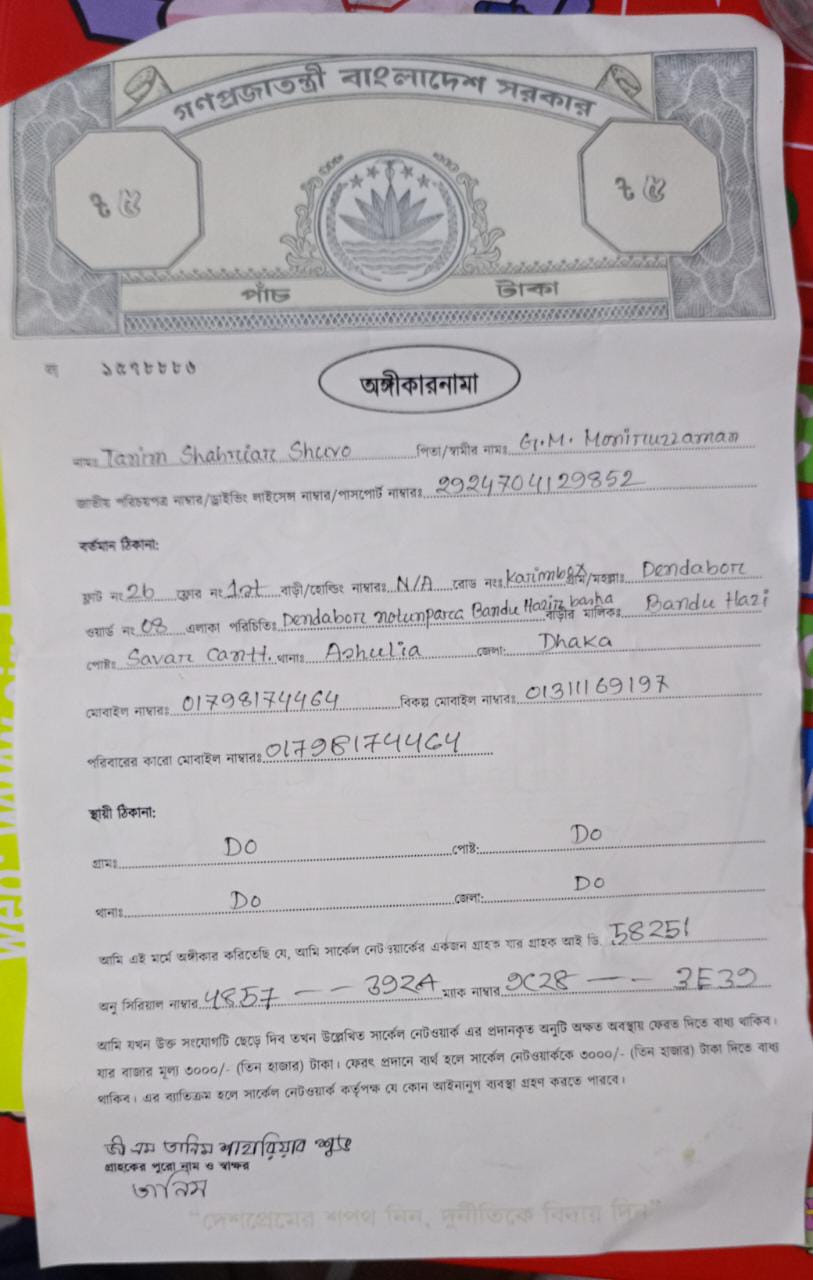 গণপ্রজাতন্ত্রী বাংলাদেশ সরকার
৳ ৫ ৳ ৫
পাঁচ টাকা
অঙ্গীকারনামা
নামঃ Tanim Shahriar Shuvo পিতা/স্বামীর নামঃ G.M. Moniruzzaman
জাতীয় পরিচয়পত্র নাম্বার/ড্রাইভিং লাইসেন্স নাম্বার/পাসপোর্ট নাম্বারঃ 2924704129852
বর্তমান ঠিকানা:
ফ্লাট নং 2b ফ্লোর নং 1st বাড়ী/হোল্ডিং নাম্বারঃ N/A রোড নংঃ গ্রাম/মহল্লাঃ Dendabor
ওয়ার্ড নং 08 এলাকা পরিচিতিঃ Dendabor notunpara Bandu Hazir basha বাড়ীর মালিকঃ Bandu Hazi
পোষ্টঃ Savar Cantt. থানাঃ Ashulia জেলা: Dhaka
মোবাইল নাম্বারঃ 01798174464 বিকল্প মোবাইল নাম্বারঃ 01311169197
পরিবারের কারো মোবাইল নাম্বারঃ 01798174464
স্থায়ী ঠিকানা:
গ্রামঃ DO পোষ্ট: DO
থানাঃ DO জেলা: DO
আমি এই মর্মে অঙ্গীকার করিতেছি যে, আমি সার্কেল নেটওয়ার্কের একজন গ্রাহক যার গ্রাহক আই ডি. 58251
অনু সিরিয়াল নাম্বার 4857 -- 392A ম্যাক নাম্বার 9C28 -- 3E39
আমি যখন উক্ত সংযোগটি ছেড়ে দিব তখন উল্লেখিত সার্কেল নেটওয়ার্ক এর প্রদানকৃত অনুটি অক্ষত অবস্থায় ফেরত দিতে বাধ্য থাকিব।
যার বাজার মূল্য ৩০০০/- (তিন হাজার) টাকা। ফেরৎ প্রদানে ব্যর্থ হলে সার্কেল নেটওয়ার্ককে ৩০০০/- (তিন হাজার) টাকা দিতে বাধ্য
থাকিব। এর ব্যতিক্রম হলে সার্কেল নেটওয়ার্ক কর্তৃপক্ষ যে কোন আইনানুগ ব্যবস্থা গ্রহণ করতে পারবে।
জী এম তানিম শাহরিয়ার শুভ
গ্রাহকের পুরো নাম ও স্বাক্ষর
তানিম
"দেশপ্রেমের শপথ নিন, দুর্নীতিকে বিদায় দিন"